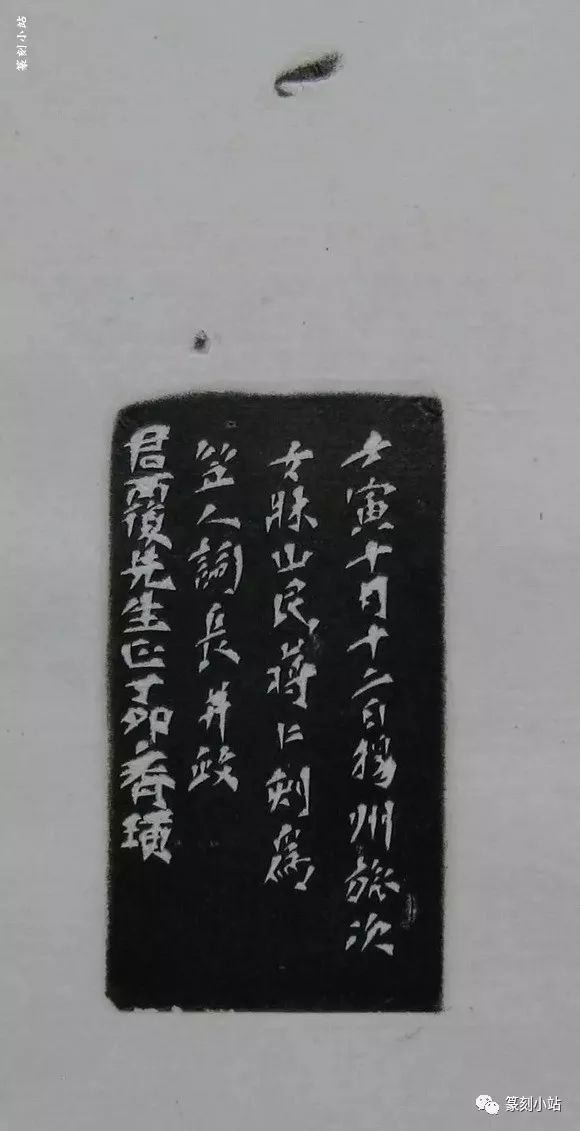 篆刻小站
壬寅十月十二日揚州旅次
女牀山民蔣仁刻為
笠人詞長并政
君覆先生正丁卯齊璜
篆刻小站